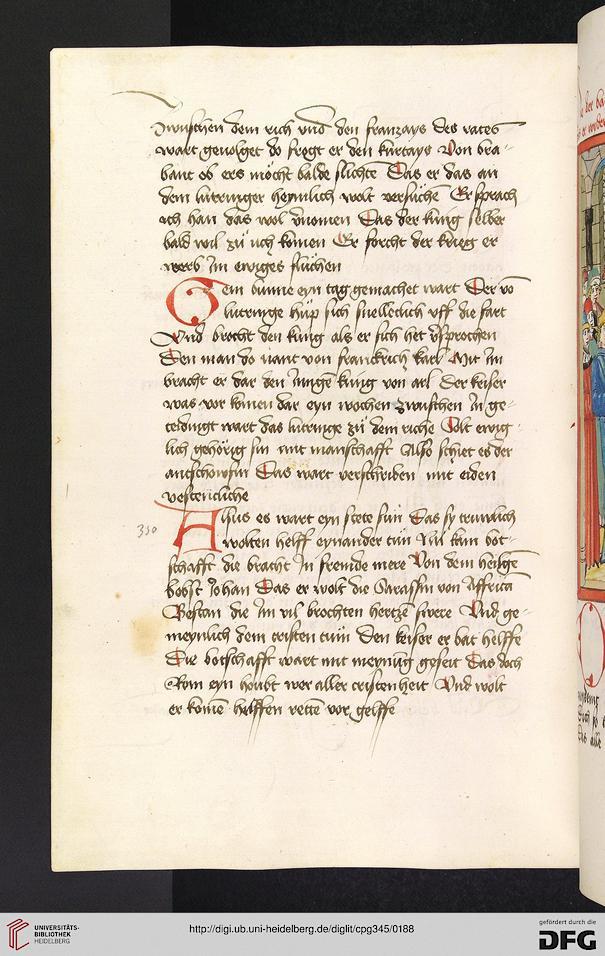 Zwuschen dem rich vnd den franzays des rates
wart geuolget do fregt er den kurtays Von bra-
bant ob ers möcht balde slichte Das er das an
dem lutringer heymlich wolt versuchen Er sprach
ich han das wol vernomen Das der kung selber
bald wil zu uch komen Er forcht der krieg er
werb Im ewiges fluchen
ein tag gemachet wart Der vo
lutringe hup sich snelleclich vff die fart
Vnd brocht den kung als er sich het v'sprochen
Den man do nant von franckrich karl Mit Im
bracht er dar den Jungen kung von arl Der keiser
was vor komen dar eyn wochen zwuschen In ge-
teidingt wart das lutringe zu dem riche Mit ewig-
lich gehörig sin mit manschafft Also schiet es der
antschowin Das wart verschriben mit eiden
vestencliche
Alsus es wart eyn stete sun Das sy truwlich
wolten helff eynander tun Nu kam bot-
schafft die bracht In fremde mere Von dem heilgen
bobst Johan Das er wolt die Sarassin von Affrica
Bestan die Im vil brochten hertzen swere Vnd ge-
meynlich dem cristen tum Den keiser er bat helffe
Die botschafft wart mit meynung geseit Das doch
Rom eyn houbt wer aller cristenheit Vnd wolt
er kome helffen rette vor gelffe
350
UNIVERSITÄTS-
BIBLIOTHEK
HEIDELBERG
http://digi.ub.uni-heidelberg.de/diglit/cpg345/0188
gefördert durch die
DFG